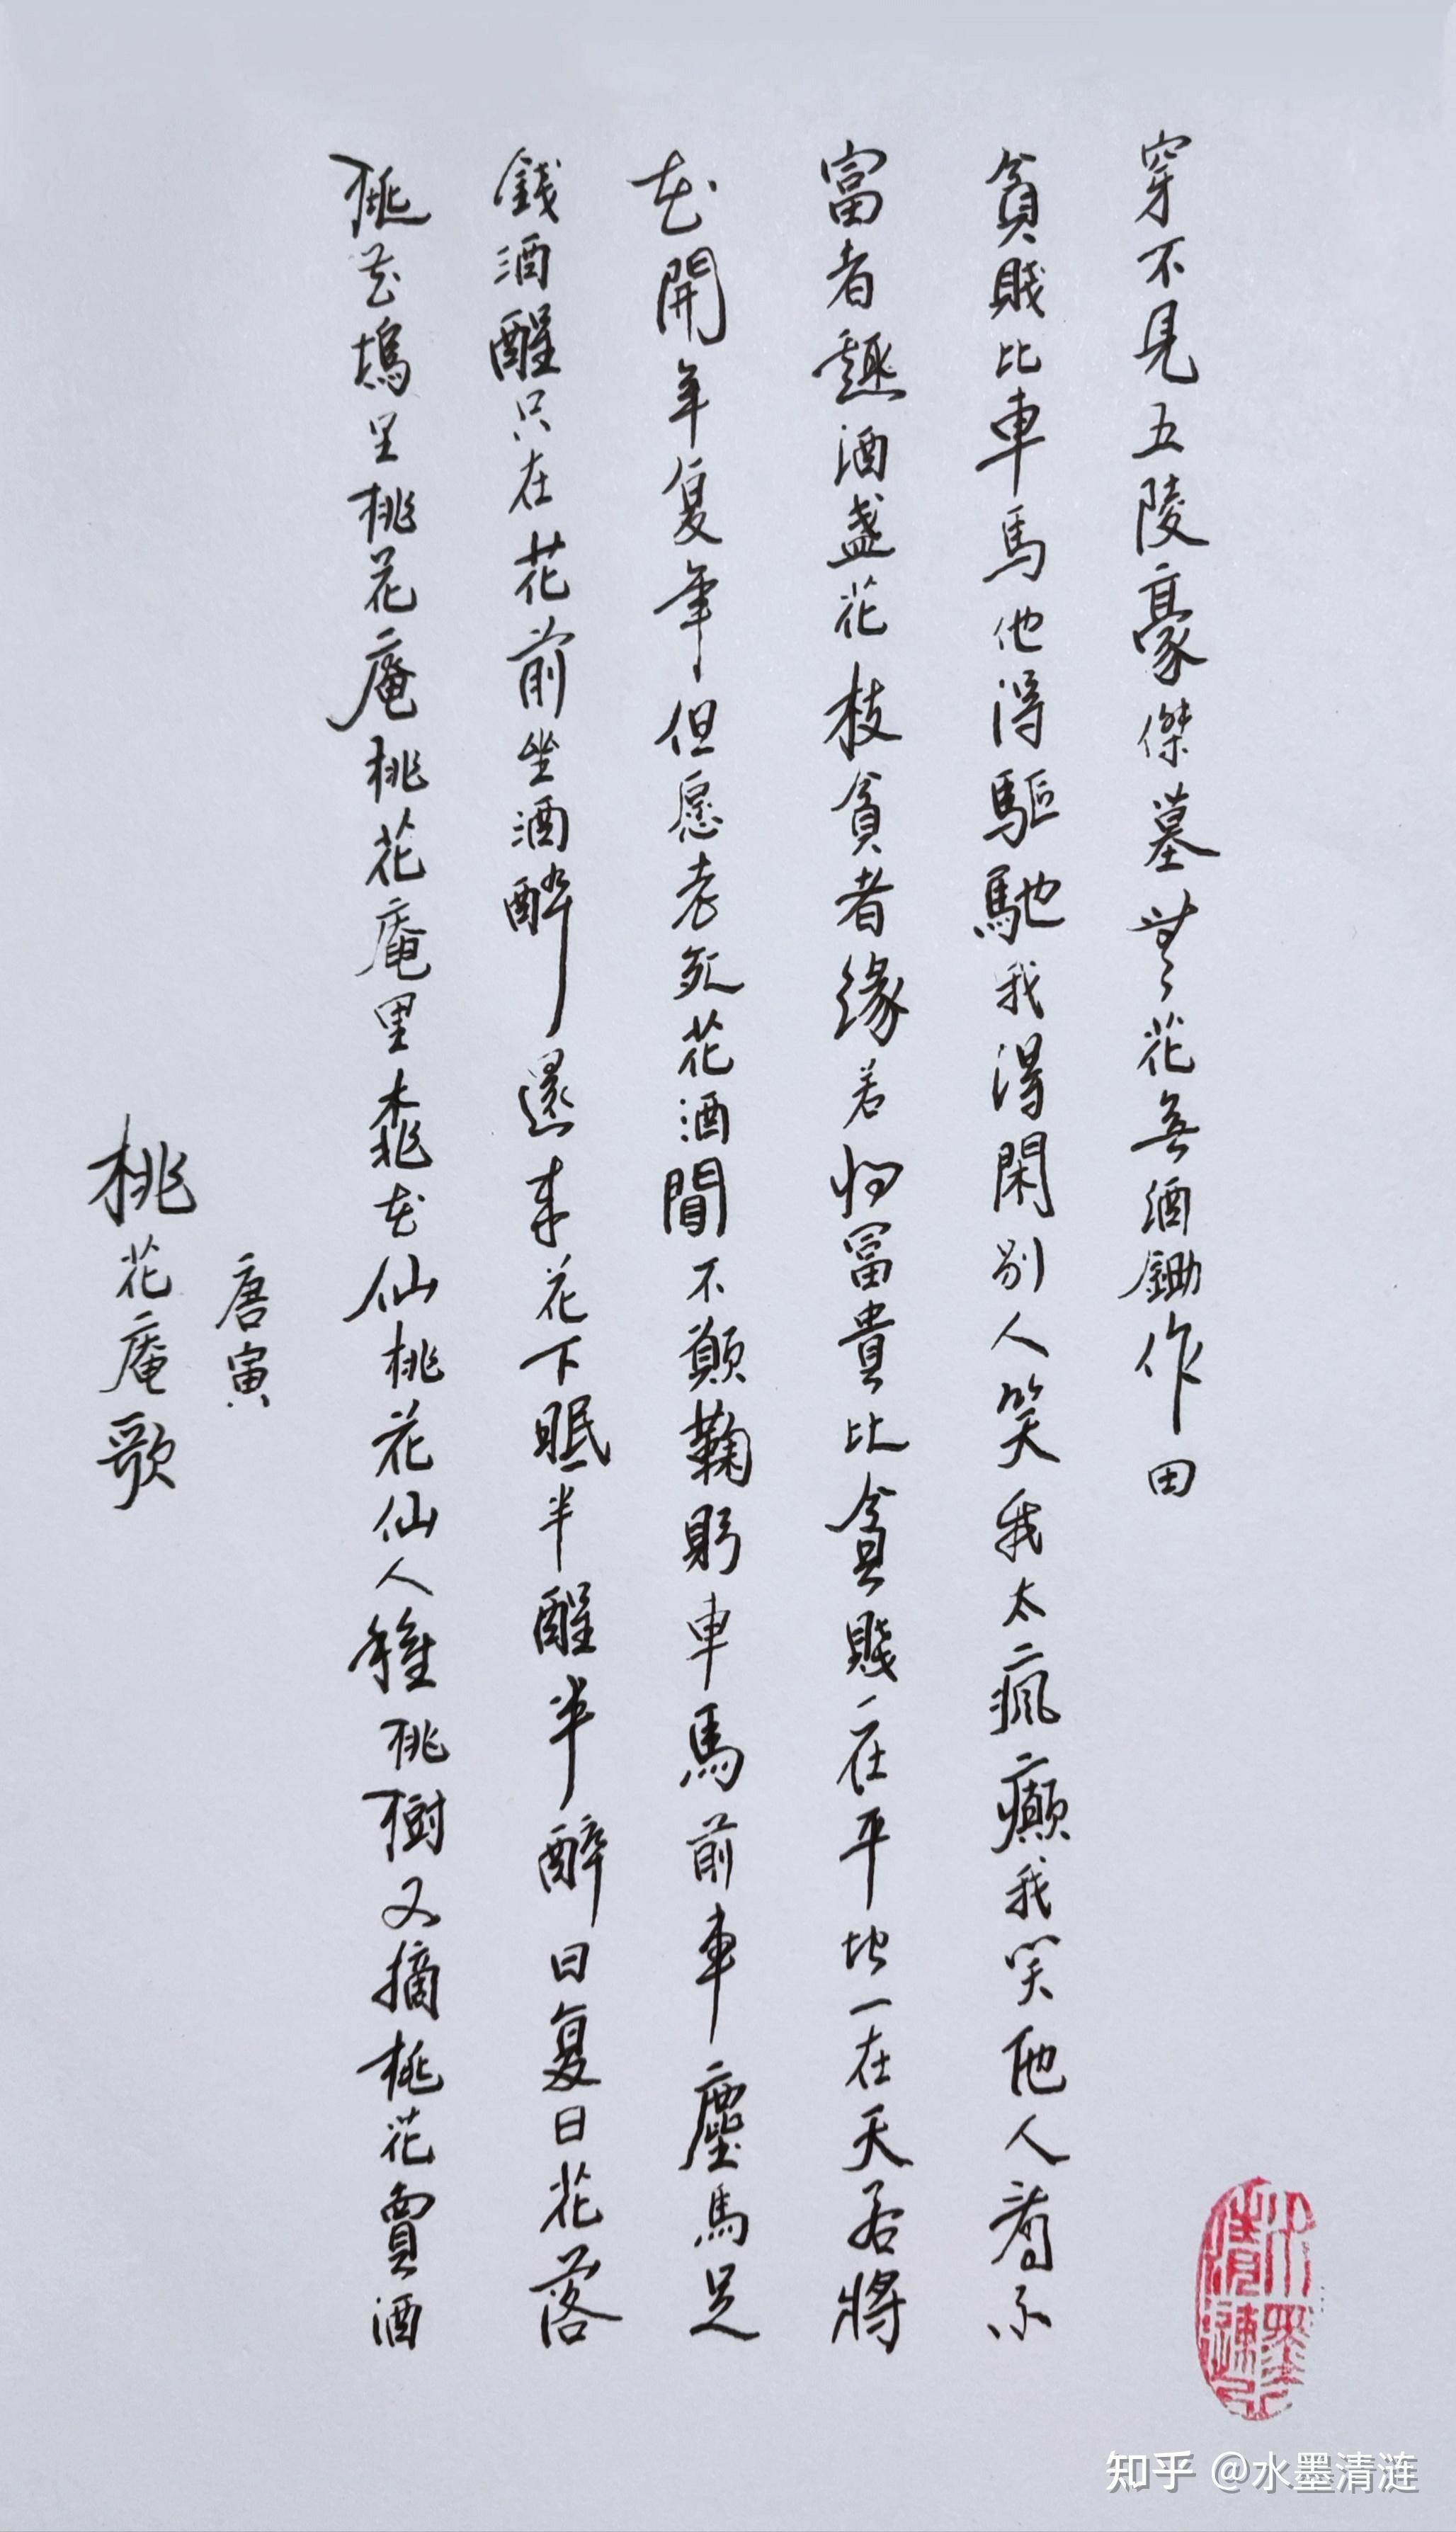 桃花庵歌
唐寅
桃花塢里桃花庵桃花庵里桃花仙桃花仙人種桃樹又摘桃花賣酒
錢酒醒只在花前坐酒醉還来花下眠半醒半醉日复日花落
花開年复年但愿老死花酒間不願鞠躬車馬前車塵馬足
富者趣酒盞花枝貧者緣若将富貴比貧賤一在平地一在天若將
貧賤比車馬他得驅馳我得閑别人笑我太瘋癲我笑他人看不
穿不見五陵豪傑墓無花無酒鋤作田
水墨
清漣
知乎 @水墨清涟